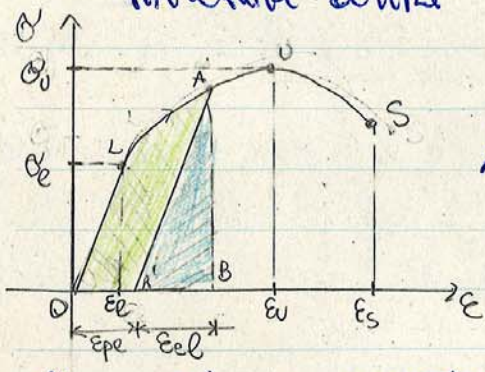 σ
σu
U
A
S
L
σe
A'
B
O
εe
εu
εs
ε
εpe
εel